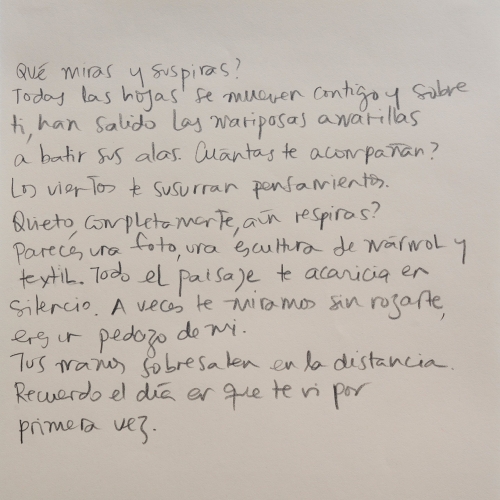 Qué miras y suspiras?
Todas las hojas se mueven contigo y sobre
ti, han salido las mariposas amarillas
a batir sus alas. Cuántas te acompañan?
Los vientos te susurran pensamientos.
Quieto, completamente, aún respiras?
Pareces una foto, una escultura de mármol y
textil. Todo el paisaje te acaricia en
silencio. A veces te miramos sin rozarte,
eres un pedazo de mi.
Tus manos sobresalen en la distancia.
Recuerdo el día en que te vi por
primera vez.